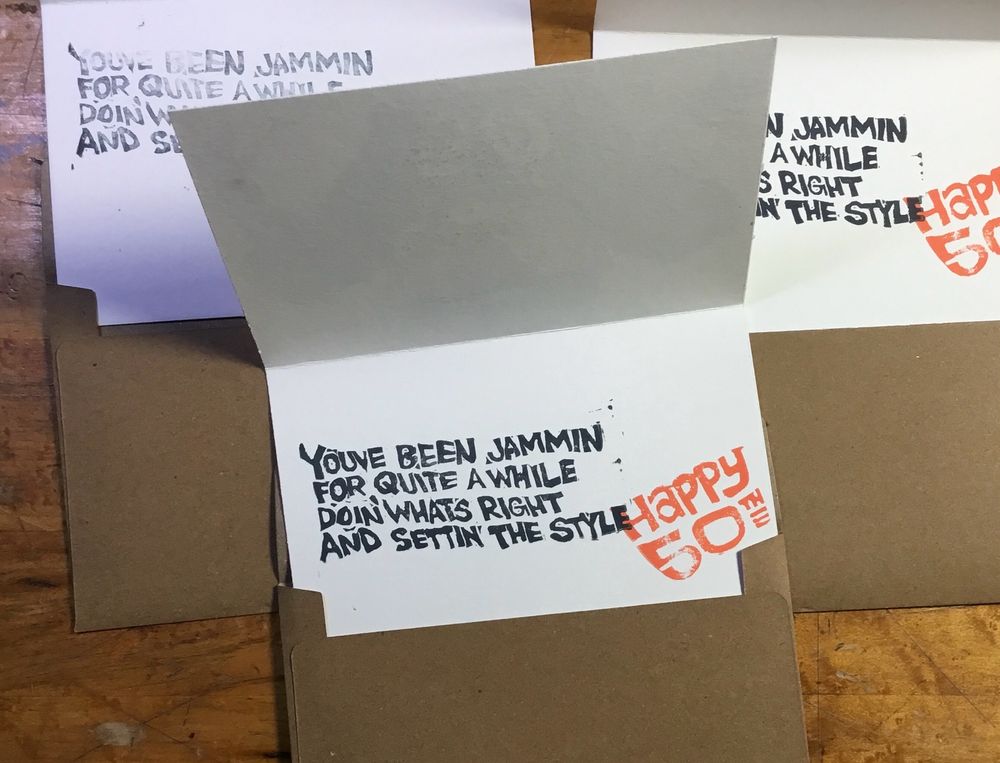 YOUVE BEEN JAMMIN
FOR QUITE A WHILE
DOIN'
AND
JAMMIN
A WHILE
RIGHT
THE STYLE
HAPP
50
YOUVE BEEN JAMMIN
FOR QUITE A WHILE
DOIN' WHATS RIGHT
AND SETTIN' THE STYLE
HAPPY
50